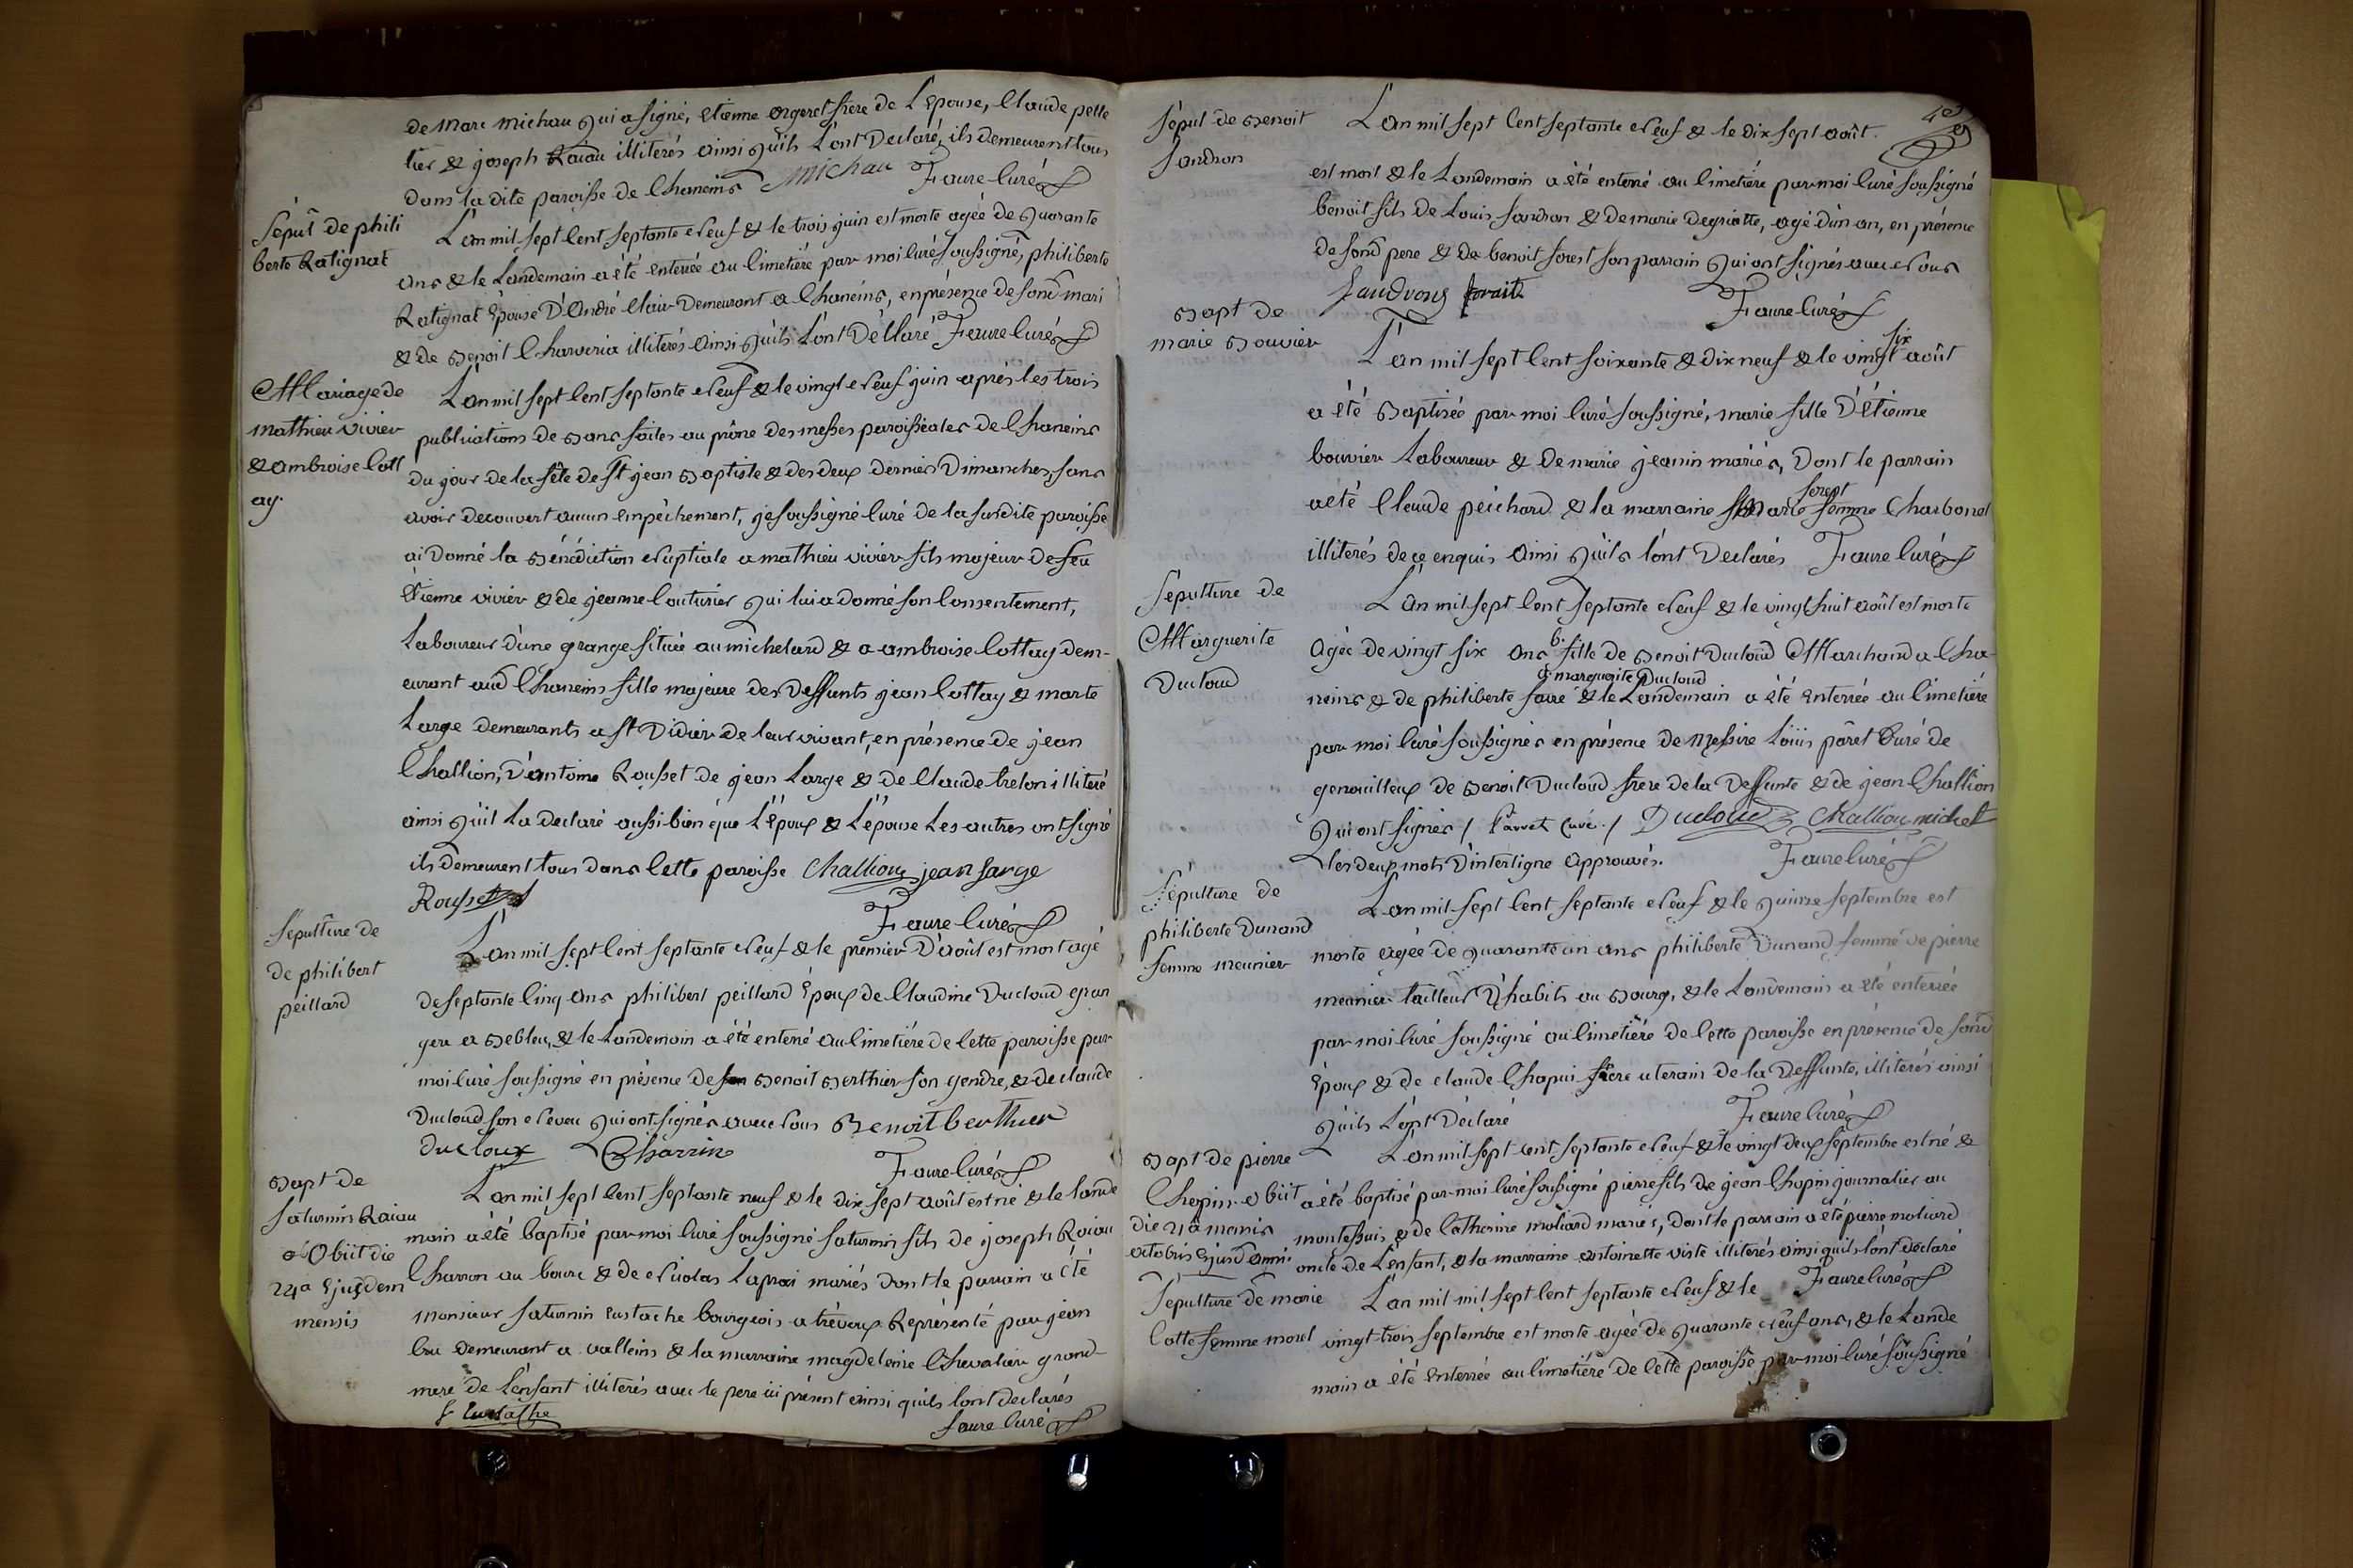 de marc michau qui a signé, etienne orgeret frere de l'epouse, Claude pelle
tier & joseph Raiau illiterés ainsi quils l'ont declaré, ils demeurent tous
dans la dite paroisse de Chaneins michau Faure Curé
Sépult de phili
berte Ratignat
L'an mil sept cent septante neuf & le trois juin est morte agée de quarante
ans & le landemain a été enterrée au cimetiére par moi curé soussigné, philiberte
Ratignat épouse d'andré demeurant a Chaneins, en présence de sond mari
& de Benoit Charveria illiterés ainsi quils l'ont déclaré Faure Curé
Mariage de
mathieu vivier
& ambroise Cott
ay.
L'an mil sept cent septante neuf & le vingt neuf juin aprés les trois
publications de bans faites au prône des messes paroissiales de Chaneins
du jour de la fête de St jean Baptiste & des deux derniers dimanches, sans
avoir decouvert aucun empêchement, je soussigné Curé de la susdite paroisse
ai donné la bénédiction nuptiale a mathieu vivier fils majeur de feu
étienne vivier & de jeanne Couturier qui lui a donné son consentement,
Laboureur d'une grange située au michelard & a ambroise Cottay dem-
eurant aud Chaneins fille majeure des deffunts jean Cottay & marte
Large demeurants a St Didier de leur vivant, en présence de jean
Challion, d'antoine Rousset de jean Large & de Claude breton illiteré
ainsi qu'il la declaré aussi bien que l'époux & l'épouse les autres ont signé
ils demeurent tous dans cette paroisse Challion jean Large
Rousset
Faure Curé
Sépulture de
de philibert
peillard
L'an mil sept cent septante neuf & le premier d'août est mort agé
de septante cinq ans philibert peillard époux de Claudine Ducloud gran
ger a & le landemain a été enterré au cimetiére de cette paroisse par
moi curé soussigné en présence de Benoit Berthier son gendre, & de claude
Ducloud son neveu qui ont signés avec nous Benoit berthier
Ducloux Charrin
Faure Curé
Bapt de
saturnin Raiau
Obiit die
24a Ejusdem
mensis
L'an mil sept cent septante neuf & le dix sept août est né & le lande
main a été baptisé par moi curé soussigné saturnin fils de joseph Raiau
Charron au bourc & de nicolas mariés dont le parrain a été
monsieur saturnin Eustache bourgeois a trévoux Représenté par jean
bru demeurant a valleins & la marraine magdeleine Chevalier grand-
mere de l'enfant illiterés avec le pere ici présent ainsi quils l'ont declarés
Eustache
faure Curé
Sépul de Benoit
Sandron
L'an mil sept Cent septante neuf & le dix sept août
est mort & le landemain a été enterré au cimetiére par moi curé soussigné
benoit fils de Louis Sandron & de marie Degriotte, agé d'un an, en présence
de sond pere & de benoit forest son parrain qui ont signés avec nous
Sandrons
Faure Curé
Bapt de
marie Bouvier
six
L'an mil sept cent soixante & dix neuf & le vingt août
a été Baptisée par moi curé soussigné, marie fille d'étienne
bouvier Laboureur & de marie jeanin mariés, dont le parrain
forest
a été Claude péichard & la marraine marie femme Charbonel
illiterés de ce enquis ainsi quils l'ont declarés Faure Curé
Sépulture de
Marguerite
Ducloud
L'an mil sept cent septante neuf & le vingt huit août est morte
agée de vingt six ans fille de Benoit Ducloud Marchand a Cha-
marguerite Ducloud
neins & de philiberte faure & le landemain a été enterrée au cimetiére
par moi curé soussignés en présence de Messire Loüis paret Curé de
genouilleux de Benoit Ducloud frere de la deffunte & de jean Challion
qui ont signés / Parret curé. / Ducloud Challion michel
les deux mots d'interligne approuvés. Faure Curé
Sépulture de
philiberte Dunand
femme meunier
L'an mil sept cent septante neuf & le quinze septembre est
morte agée de quarante un ans philiberte Dunand femme de pierre
meunier tailleur d'habits au Bourg, & le landemain a été enterrée
par moi curé soussigné au cimetiére de cette paroisse en présence de sond
époux & de claude Chapui frere uterain de la deffunte, illiterés ainsi
quils l'ont déclaré Faure Curé
Bapt de pierre
Chopin obiit
die 21a mensis
octobris Ejusd anni
L'an mil sept cent septante neuf & le vingt deux septembre est né &
a été baptisé par moi curé soussigné pierre fils de jean Chopin journalier au
montessuis, & de Catherine moliard mariés, dont le parrain a été pierre moliard
oncle de l'enfant, & la marraine antoinette viste illiterés ainsi quils l'ont declaré
Faure Curé
Sépulture de marie
Cotte femme morel
L'an mil mil sept cent septante neuf & le
vingt trois septembre est morte agée de quarante neuf ans, & le lande
main a été enterrée au cimetiére de cette paroisse par moi curé soussigné